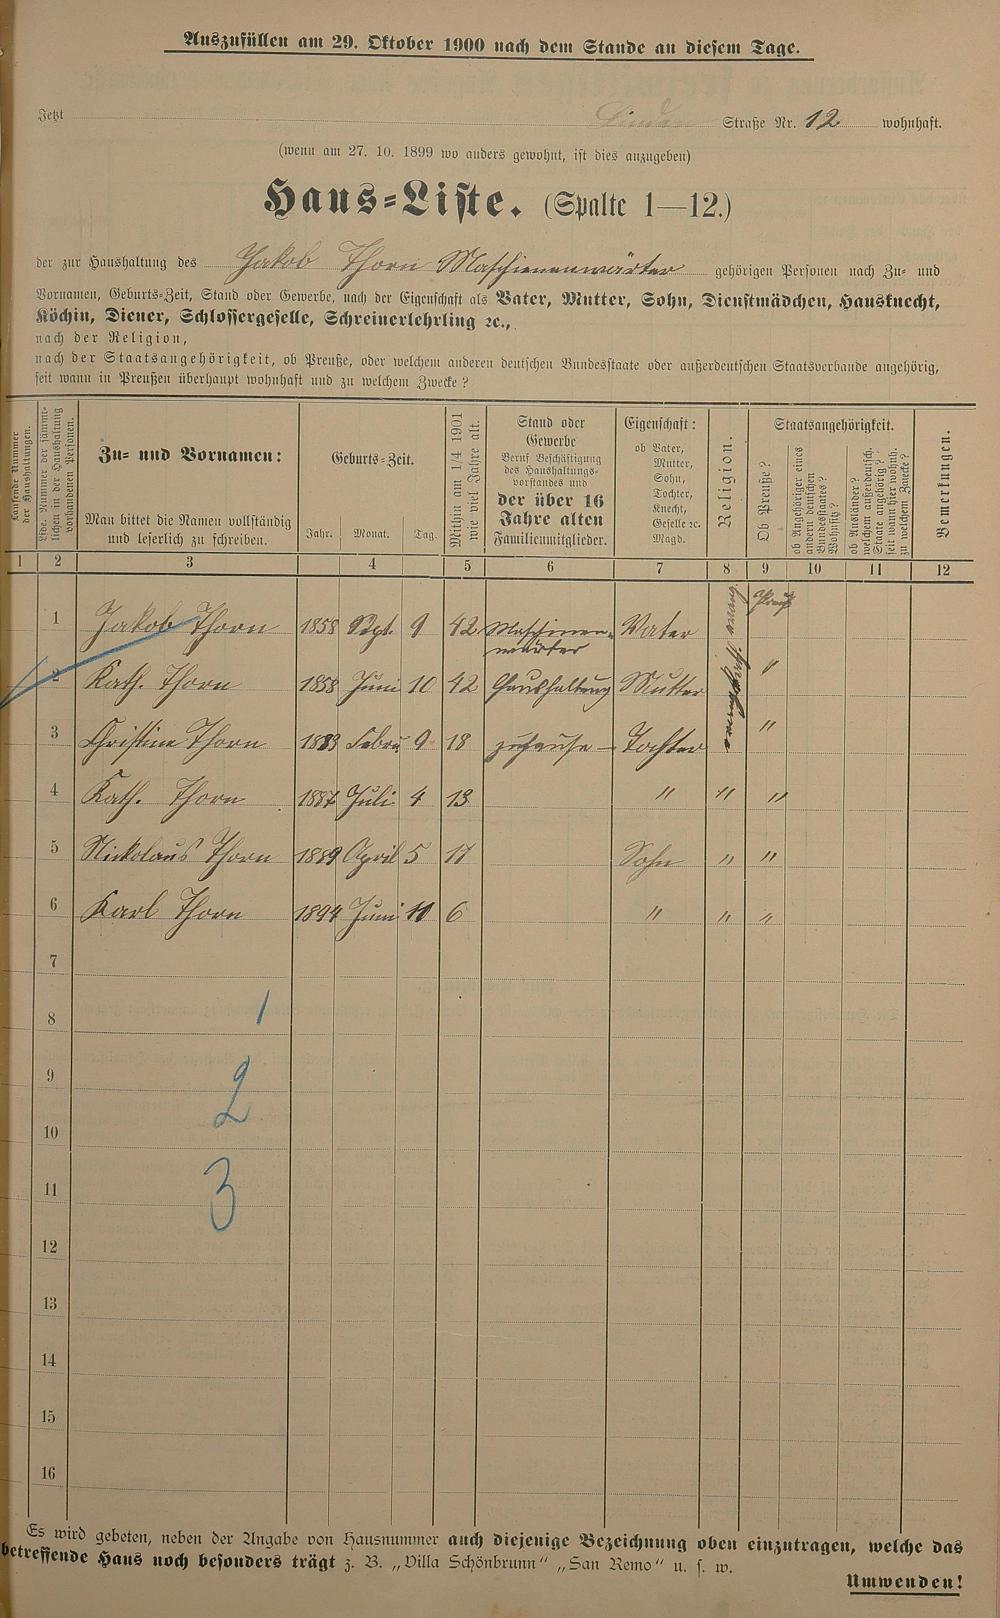 Auszufüllen am 29. Oktober 1900 nach dem Stande an diesem Tage.
Jetzt Linden Straße Nr. 12 wohnhaft.
(wenn am 27. 10. 1899 wo anders gewohnt, ist dies anzugeben)
Haus-Liste. (Spalte 1—12.)
der zur Haushaltung des Jakob Thorn Maschienenwärter gehörigen Personen nach Zu- und
Vornamen, Geburts-Zeit, Stand oder Gewerbe, nach der Eigenschaft als Vater, Mutter, Sohn, Dienstmädchen, Hausknecht,
Köchin, Diener, Schlossergeselle, Schreinerlehrling ꝛc.,
nach der Religion,
nach der Staatsangehörigkeit, ob Preuße, oder welchem anderen deutschen Bundesstaate oder außerdeutschen Staatsverbande angehörig,
seit wann in Preußen überhaupt wohnhaft und zu welchem Zwecke?
Laufende Nummer der Haushaltungen.
Lfde. Nummer der sämmtlichen in der Haushaltung vorhandenen Personen.
Zu- und Vornamen:
Man bittet die Namen vollständig
und leserlich zu schreiben.
Geburts-Zeit.
Jahr. Monat. Tag.
Mithin am 1/4 1901
wie viel Jahre alt.
Stand oder
Gewerbe
Beruf Beschäftigung
des Haushaltungs-
vorstandes und
der über 16
Jahre alten
Familienmitglieder.
Eigenschaft:
ob Vater,
Mutter,
Sohn,
Tochter,
Knecht,
Geselle ꝛc.
Magd.
Religion.
Staatsangehörigkeit.
Ob Preuße?
ob Angehöriger eines
andern deutschen
Bundesstaates?
Wohnsitz?
ob Ausländer?
welchem außerdeutsch.
Staate angehörig?
seit wann hier wohnh.
zu welchem Zwecke?
Bemerkungen.
1 2 3 4 5 6 7 8 9 10 11 12
1 Jakob Thorn 1858 Sept. 9 42 Maschinen- Vater Preuß
wärter
2 Kath. Thorn 1858 Juni 10 42 Haushaltung Mutter "
3 Christine Thorn 1883 Febru 9 18 zuhause — Tochter "
4 Kath. Thorn 1887 Juli 4 13 " " "
5 Nickolaus Thorn 1889 April 5 11 Sohn " "
6 Karl Thorn 1894 Juni 10 6 " " "
7
1
8
9
2
10
11
3
12
13
14
15
16
Es wird gebeten, neben der Angabe von Hausnummer auch diejenige Bezeichnung oben einzutragen, welche das
betreffende Haus noch besonders trägt z. B. „Villa Schönbrunn“ „San Remo“ u. s. w.
Umwenden!